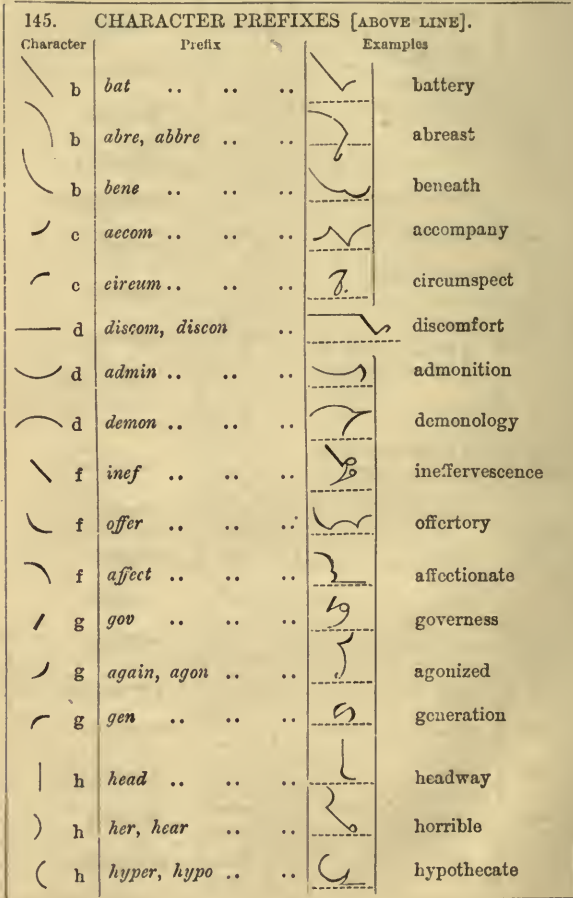 145. CHARACTER PREFIXES [ABOVE LINE].
Character Prefix Examples
b bat .. .. .. battery
b abre, abbre .. .. abreast
b bene .. .. .. beneath
c aecom .. .. .. accompany
c eireum .. .. .. circumspect
d discom, discon .. discomfort
d admin .. .. .. admonition
d demon .. .. .. demonology
f inef .. .. .. ineffervescence
f offer .. .. .. offertory
f affect .. .. .. affectionate
g gov .. .. .. governess
g again, agon .. .. agonized
g gen .. .. .. generation
h head .. .. .. headway
h her, hear .. .. horrible
h hyper, hypo .. .. hypothecate